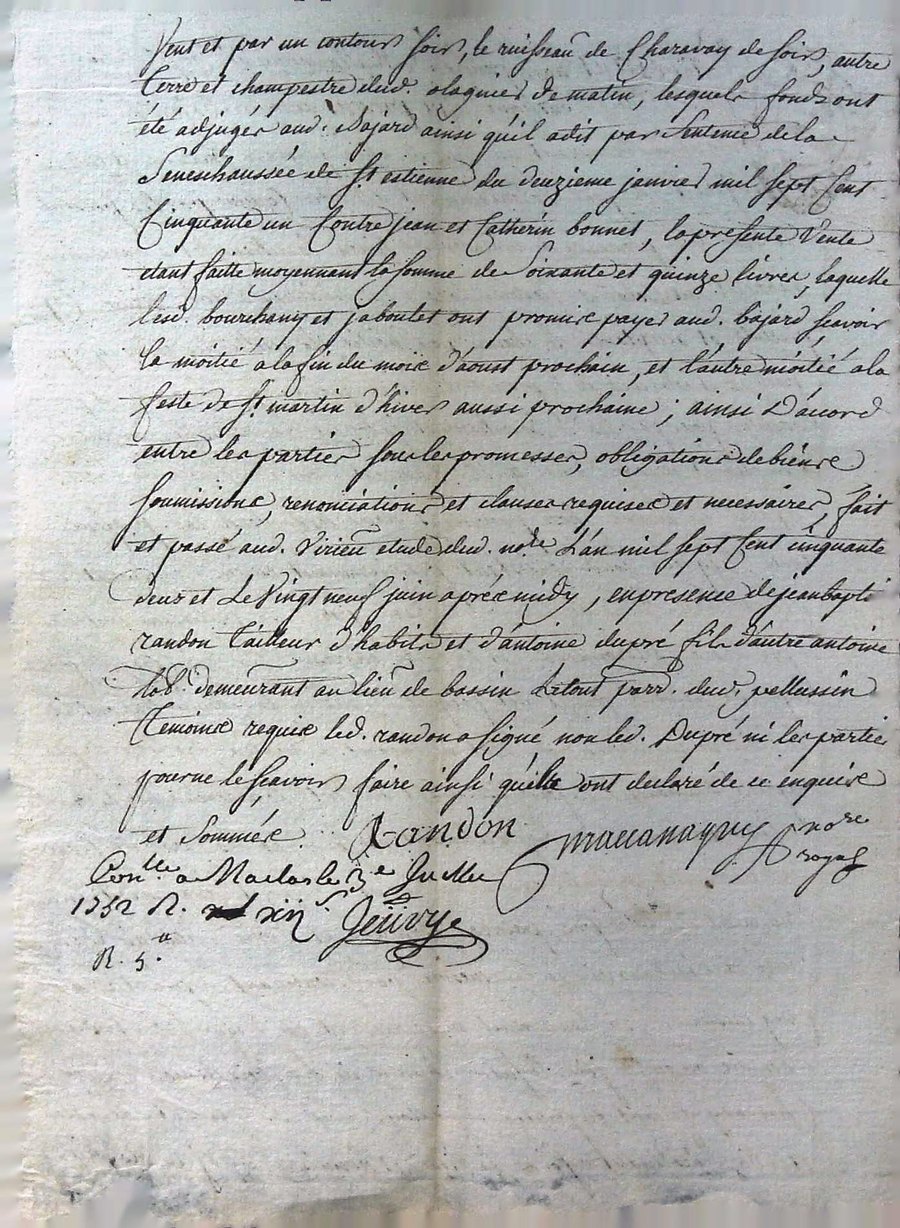 Vent et par un contour soir, le ruisseau de Charavay de soir, autre
terre et champestre dud. olagnier de matin, lesquels fonds ont
été adjugés aud. Bajard ainsi qu'il a dit par Sentence de la
Seneschaussée de St. estienne du deuzieme janvier mil sept Cent
Cinquante un Contre jean et Catherin bonnet, la presente Vente
etant faitte moyennant la somme de Soixante et quinze livres, laquelle
lesd. bourchany et jaboulet ont promis payer aud. bajard scavoir
la moitié a la fin du mois d'aoust prochain, et l'autre moitié a la
feste de St. martin d'hiver aussi prochaine ; ainsi D'acord
entre les parties sous les promesses, obligations de biens
soumissions, renonciations et clauses requises et necessaires, fait
et passé aud. Virieu etude dud. nore. L'an mil sept Cent cinquante
deux et Le Vingt neuf juin aprés midy, en presence de jean bapte
randon tailleur d'habits et d'antoine dupré fils d'autre antoine
lab. demeurant au lieu de bassin Le tout parr. dud. pellussin
temoins requis led. randon a signé non led. Dupré ni les parties
pour ne le scavoir faire ainsi qu'elle ont declaré de ce enquis
et Sommés. Randon nore
royal
Conlle a Maclas le 3e Juillet
1752 R. xiis
R. 5.